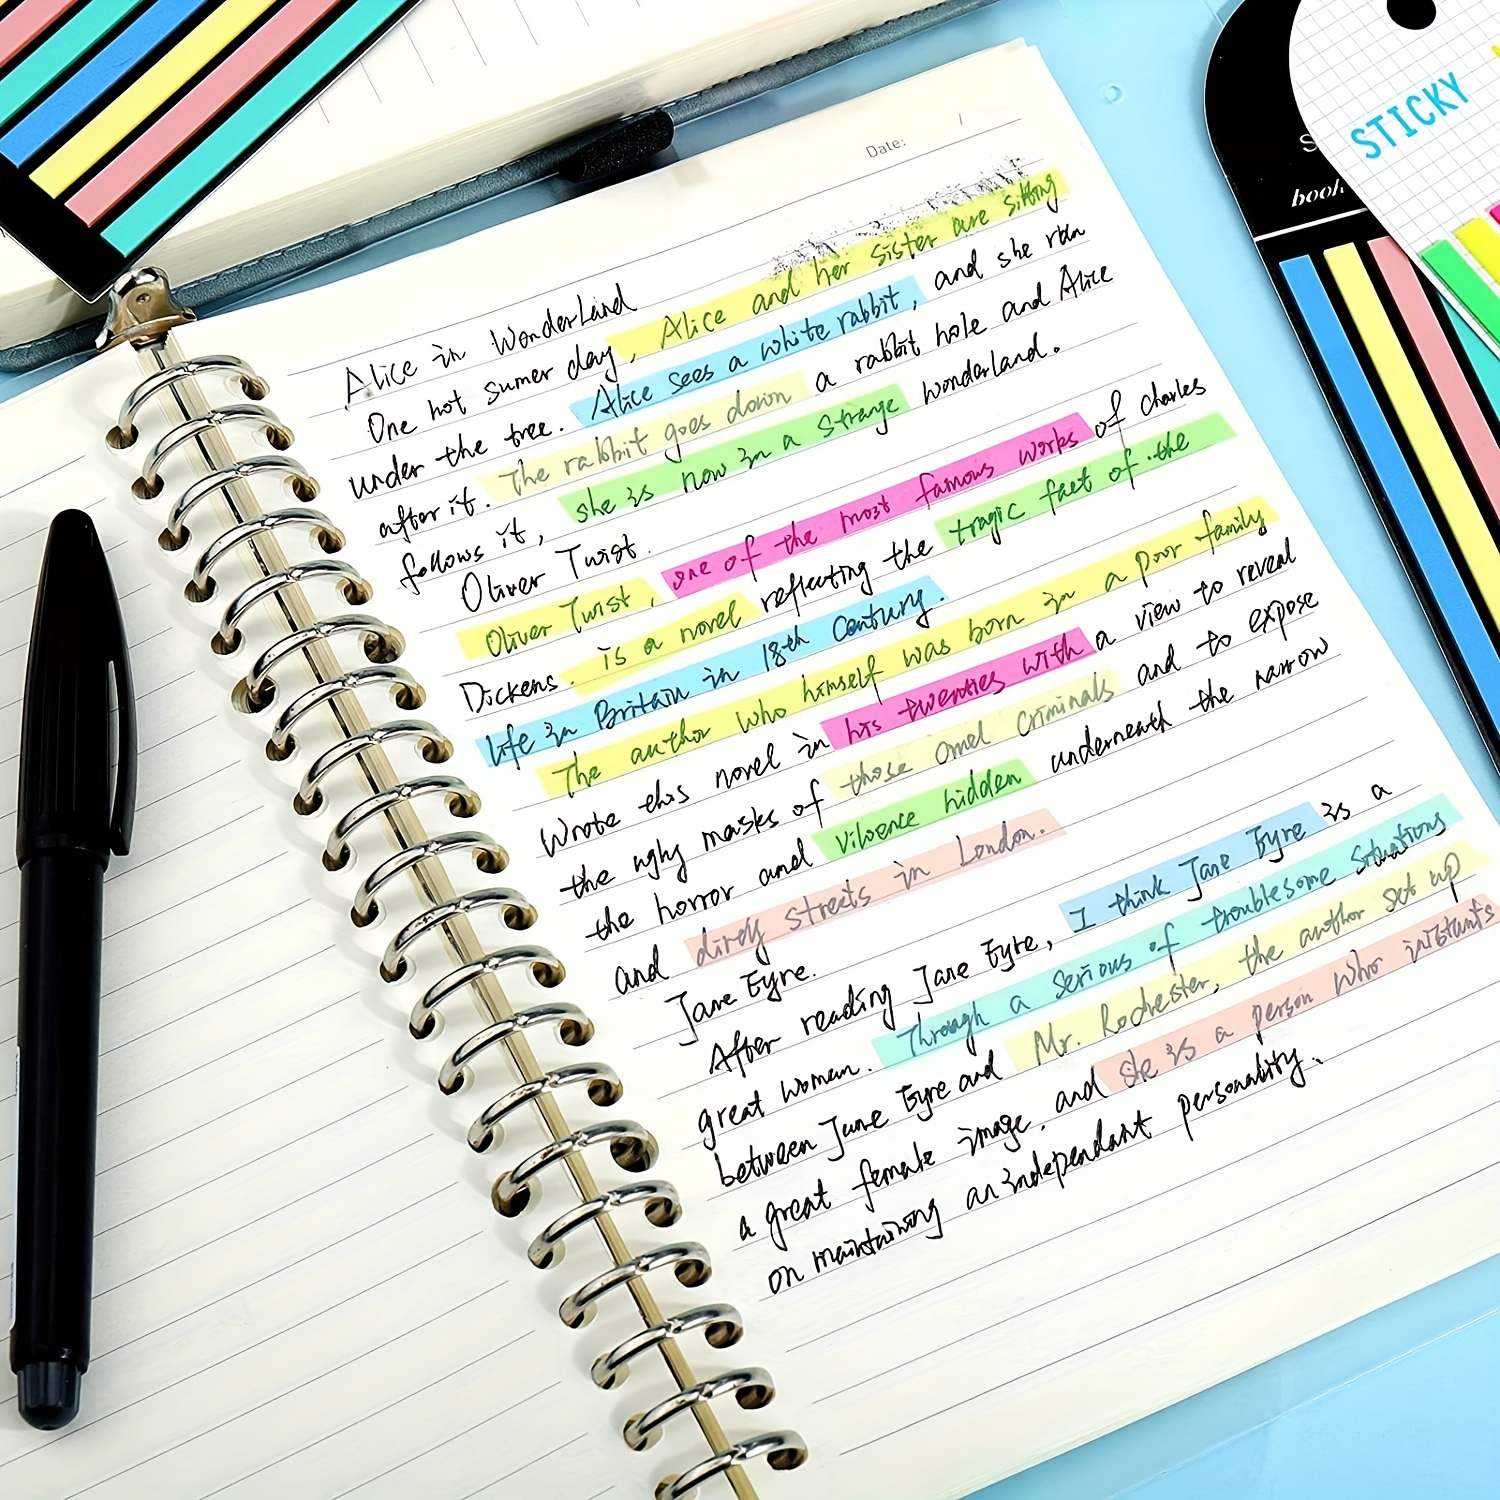 Date:
Alice in Wonderland
One hot sumer day, Alice and her sister are sitting
under the tree. Alice sees a white rabbit, and she run
after it. The rabbit goes down a rabbit hole and Alice
follows it, she is now in a strange wonderland.
Oliver Twist.
Oliver Twist, one of the most famous works of charles
Dickens. is a novel reflecting the tragic fact of the
life in Britain in 18th Century.
The author who himself was born in a poor family
Wrote this novel in his twenties with a view to reveal
the ugly masks of those cruel criminals and to expose
the horror and vilvence hidden underneath the narrow
and dirdy streets in London.
Jane Eyre.
After reading Jane Eyre, I think Jane Eyre is a
great woman. Through a serious of troublesome situations
between Jane Eyre and Mr. Rochester, the author set up
a great female image. and she is a person who insistants
on maintaining an independant personality.
STICKY
book